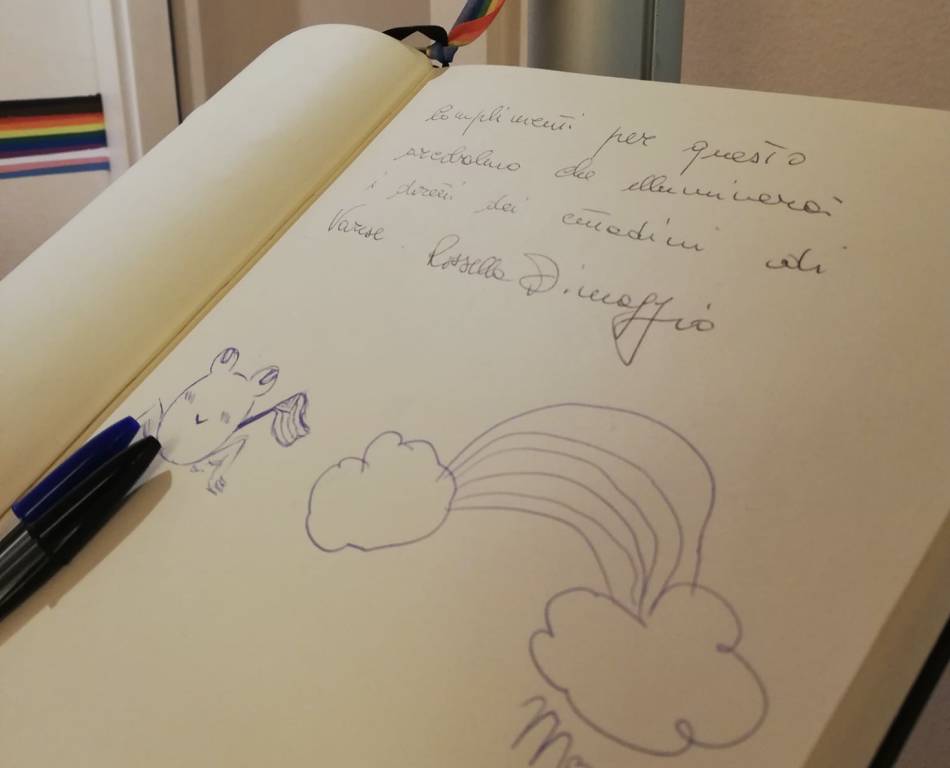 Complimenti per questo
arcobaleno che illuminerà
i diritti dei cittadini di
Varese. Rossella Dimaggio